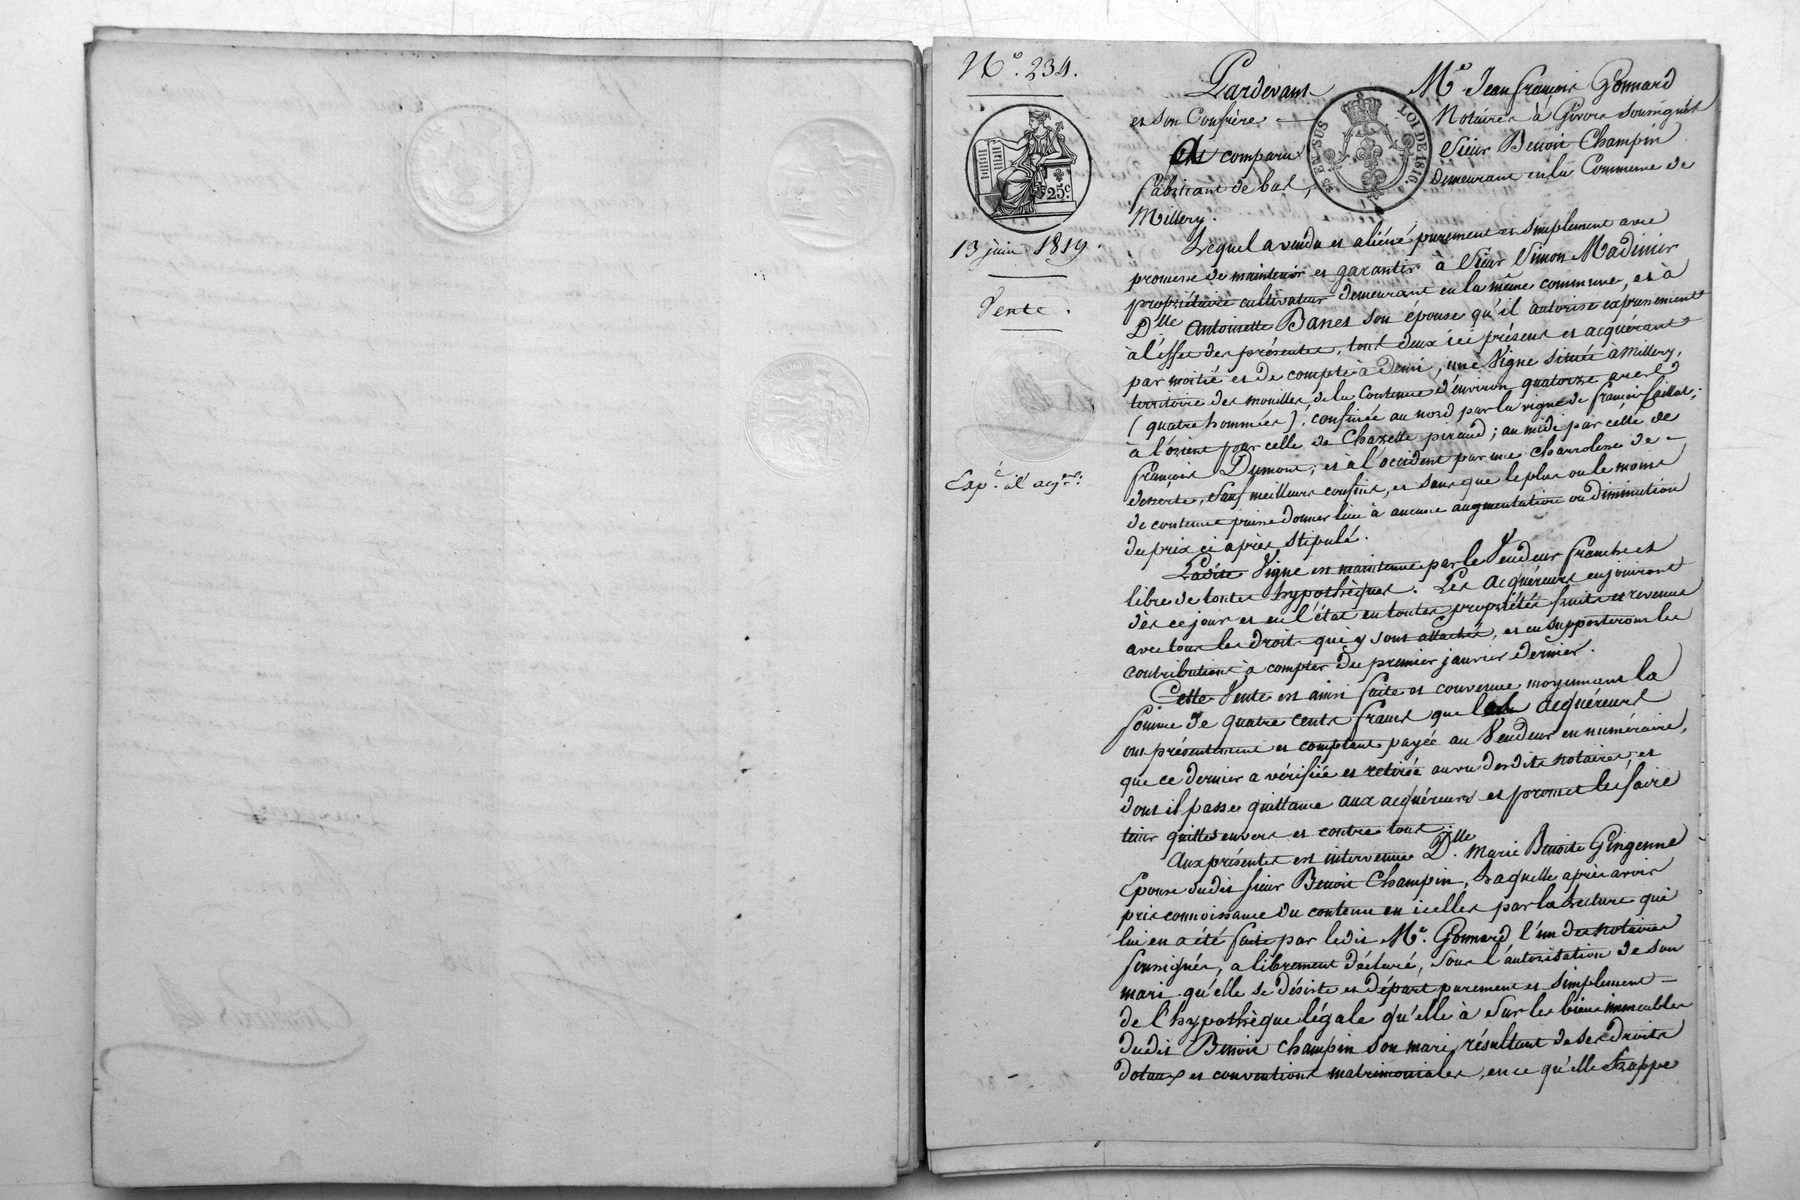 N.º 234.
25.c
13 juin 1819.
Vente.
Exp.é à l'acq.r
EN SUS
LOI DE 1816
Pardevant Me Jean françois Gonnard
et son Confrère Notaires à Givors soussignés
A comparu Sieur Benoit Champin
fabricant de bas, demeurant en la Commune de
Millery.
Lequel a vendu et aliéné purement et simplement avec
promesse de maintenir et garantir à Sieur Simon Madinier
propriétaire cultivateur demeurant en la même commune, et à
Dlle Antoinette Banet son épouse qu'il autorise expressement
à l'effet des présentes, tous deux ici présens et acquérant
par moitié et de compte à demi, une Vigne située à Millery,
territoire des mouilles de la Contenue d'environ quatorze ares
(quatre hommées), confinée au nord par la vigne de françois
à l'orient par celle de Chazette piraud; au midi par celle de
françois Dumont; et à l'occident par une charrolerie de
desserte, sauf meilleurs confins, et sans que le plus ou le moins
de contenue puisse donner lieu à aucune augmentation ou diminution
du prix ci après stipulé.
Ladite Vigne est maintenue par le Vendeur franche et
libre de toutes hypothèques. Les Acquéreurs en jouiront
dès ce jour et en l'état en toutes propriétés fruits et revenus
avec tous les droits qui y sont attachés, et en supporteront les
contributions à compter du premier janvier dernier.
Cette Vente est ainsi faite et convenue moyennant la
somme de quatre cents francs que les acquéreurs
ont présentement et comptant payée au Vendeur en numéraire,
que ce dernier a vérifiée et retirée au vu desdits notaires, et
dont il passe quittance aux acquéreurs et promet les faire
tenir quittes envers et contre tous.
Aux présentes est intervenue Dlle Marie Benoite Gingenne
Epouse dudit sieur Benoit Champin, Laquelle après avoir
pris connoissance du contenu en icelles par la Lecture qui
lui en a été faite par ledit Me. Gonnard l'un des notaires
soussignés, a librement déclaré, sous l'autorisation de son
mari qu'elle se désiste et départ purement et simplement
de l'hypothèque légale qu'elle à sur les biens immeubles
dudit Benoit Champin son mari, résultant de ses droits
dotaux et conventions matrimoniales, en ce qu'elle frappe